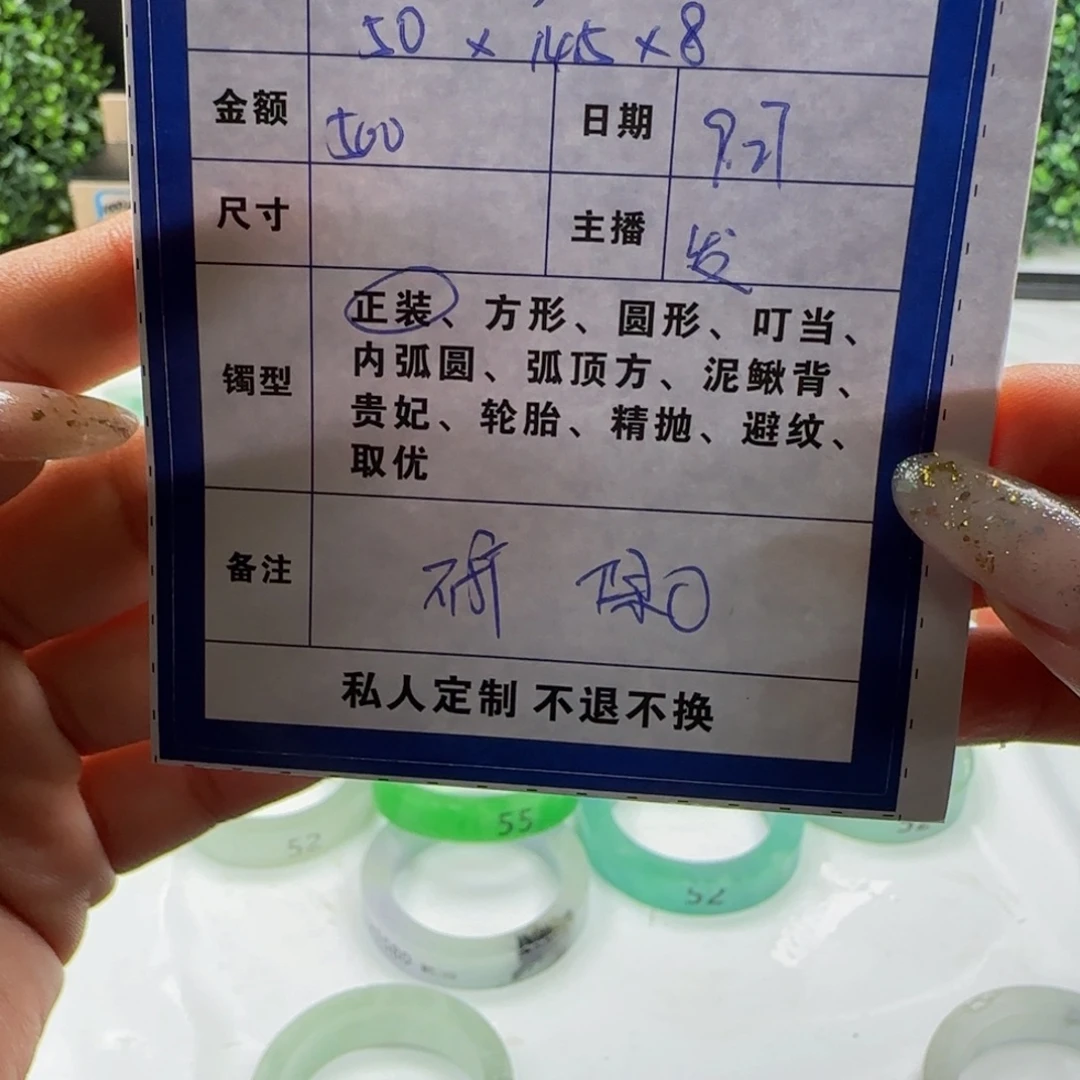 50 × 14.5 × 8
金额 500 日期 9.27
尺寸 主播 发
镯型 正装、方形、圆形、叮当、
内弧圆、弧顶方、泥鳅背、
贵妃、轮胎、精抛、避纹、
取优
备注
私人定制 不退不换
52
55
52
52